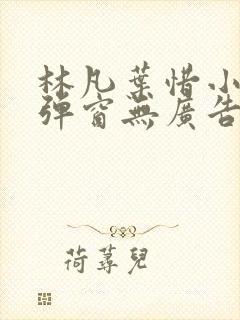 林凡葉惜小
彈窗無廣告
荷蕁兒